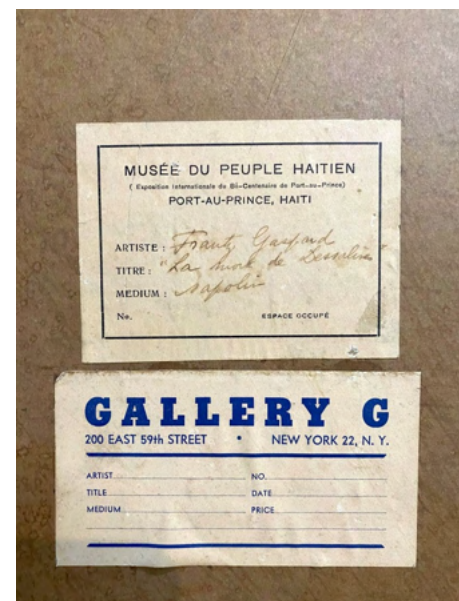 MUSÉE DU PEUPLE HAITIEN
( Exposition Internationale du Bi-Centenaire de Port-au-Prince)
PORT-AU-PRINCE, HAITI
ARTISTE : Frantz Gaspard
TITRE : "La mort de Dessalines"
MEDIUM : Mapolin
No. ESPACE OCCUPÉ
GALLERY G
200 EAST 59th STREET • NEW YORK 22, N. Y.
ARTIST NO.
TITLE DATE
MEDIUM PRICE